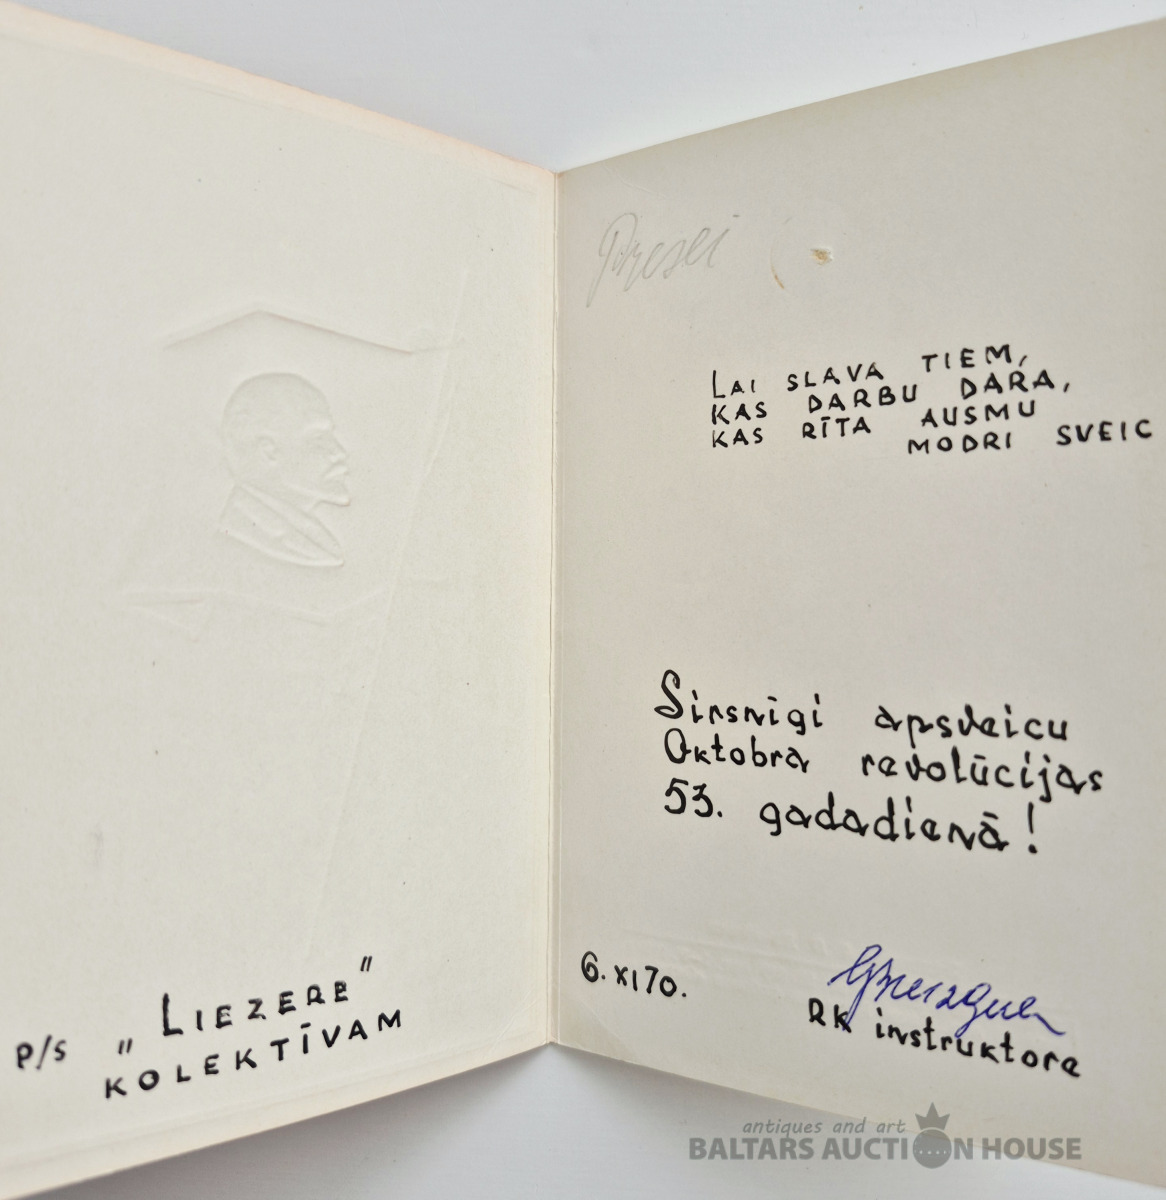 p/s „LIEZERE"
KOLEKTĪVAM
Presei
LAI SLAVA TIEM,
KAS DARBU DARA,
KAS RĪTA AUSMU
MODRI SVEIC
Sirsnīgi apsveicu
Oktobra revolūcijas
53. gadadienā!
6. XI 70.
RK instruktore
antiques and art
BALTARS AUCTION HOUSE